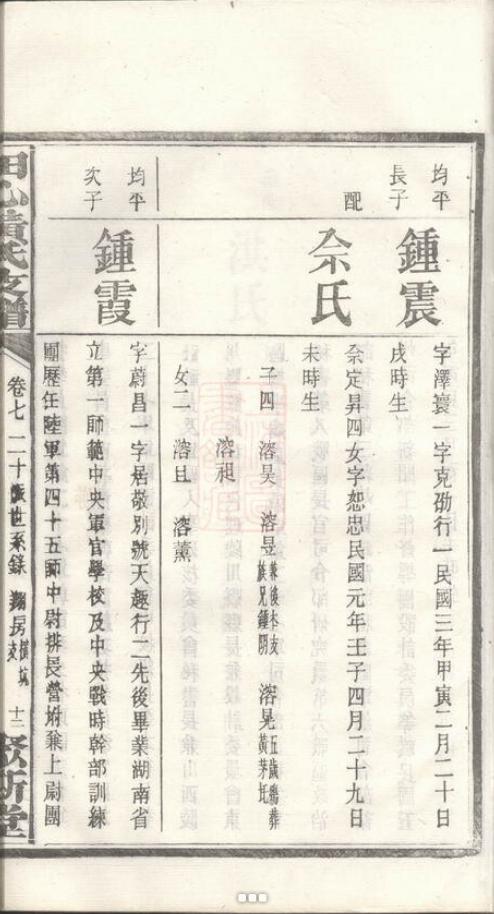 均平
長子
鍾震
字澤寰一字克劭行一民國三年甲寅二月二十日
戌時生
配
佘氏
佘定昇四女字恕忠民國元年壬子四月二十九日
未時生
子四 溶昊 溶昱兼後本支族兄鍾 溶晃五歲殤葬黃茅坵
溶昶
女二 溶且 溶薰
均平
次子
鍾霞
字蔚昌一字居敬別號天趣行二先後畢業湖南省
立第一師範中央軍官學校及中央戰時幹部訓練
團歷任陸軍第四十五師中尉排長營附兼上尉團
田心黃氏支譜
卷七 二十 世系錄 房 支 十二
敦新堂